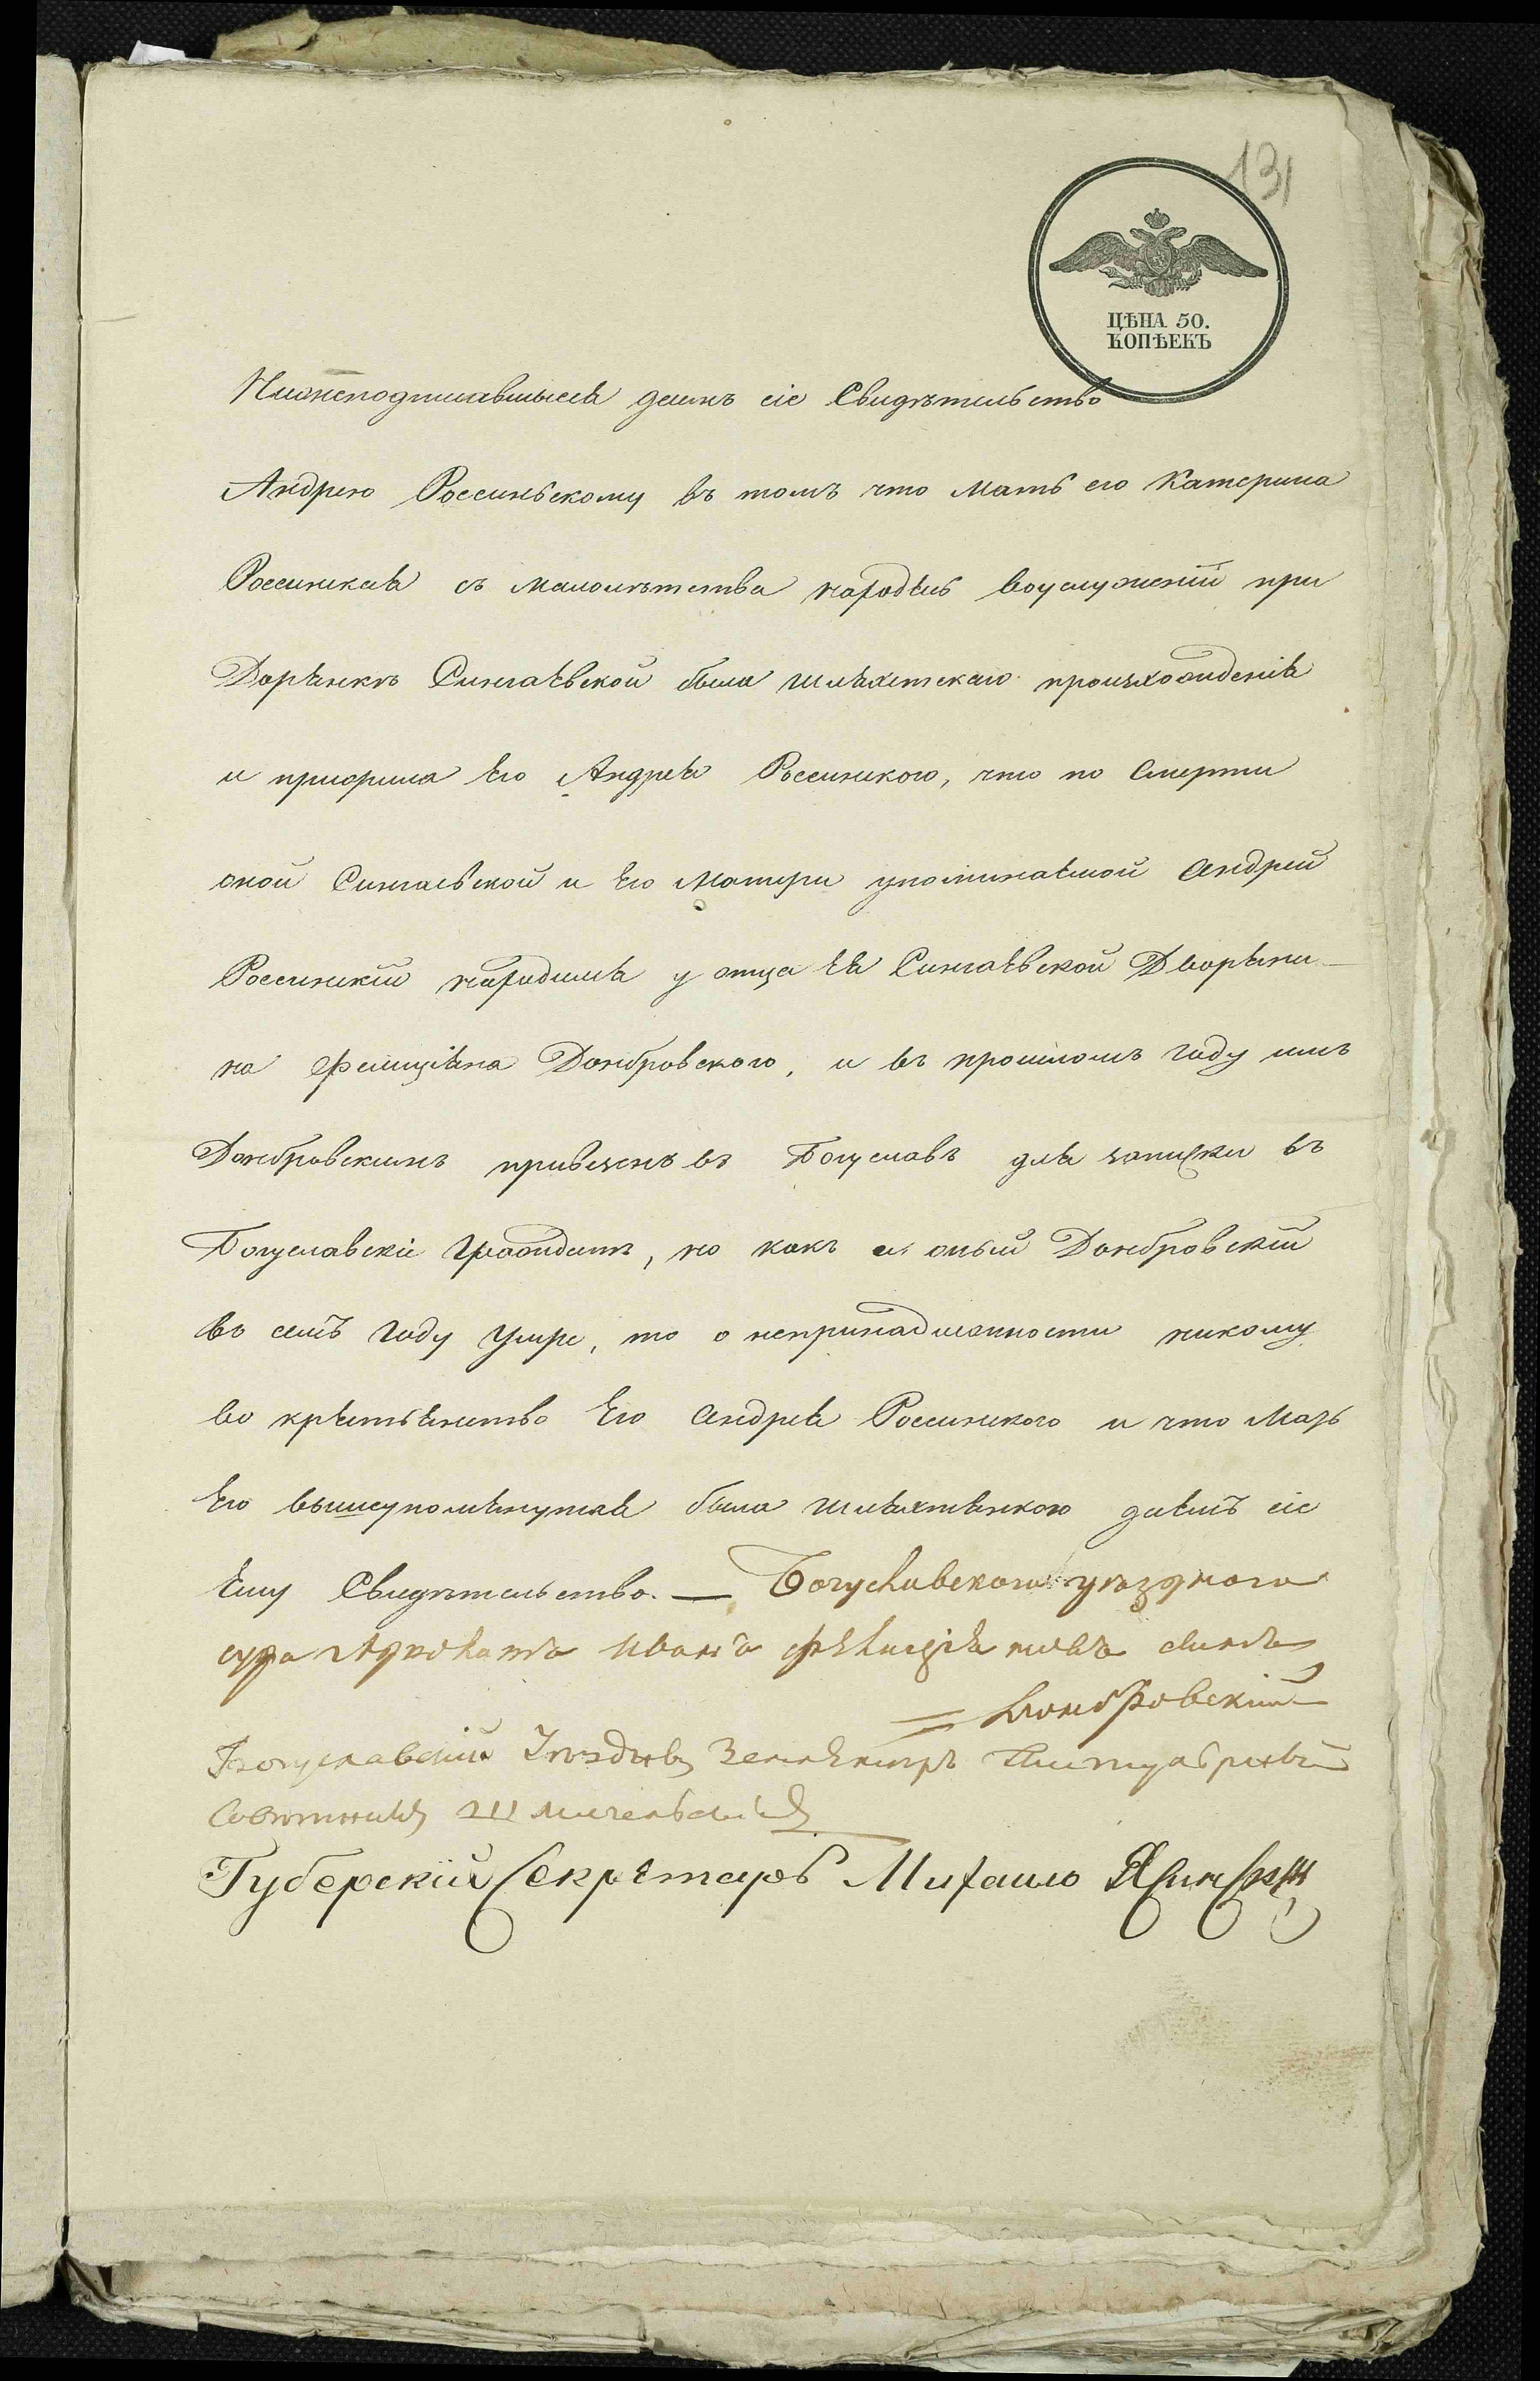 131
ЦѢНА 50.
КОПѢЕКЪ
Нижеподписавшыеся даемъ сіе Свидѣтельство
Андрею Россинскому въ томъ что Мать его Катерина
Россинская съ малолѣтства находясь воуслуженіи при
Дорянкѣ Сингаевской была шляхетскаго происхожденія
и прижила Его Андрея Россинского, что по Смерти
оной Сингаевской и Его Матери упоминаемой Андрей
Россинскій находился у отца Ея Сингаевской Дворяни-
на Фелиціяна Домбровского, и въ прошломъ году имъ
Домбровскимъ привезенъ въ Богуславъ для записки въ
Богуславскіе Граждане, но какъ и оный Домбровскій
въ семъ Году Умре, то о непринадлежности никому
во крестьянство Его Андрея Россинского и что Мать
Его вышеупомянутая была шляхтянкою даемъ сіе
Ему Свидѣтельство. — Богуславского уѣздного
суда Адвокатъ Иванъ Фелиціяновъ сынъ
= Домбровскій
Богуславскій Уѣздный Землемѣръ Титулярный
Совѣтникъ
Губерскій Секретарь Михаило